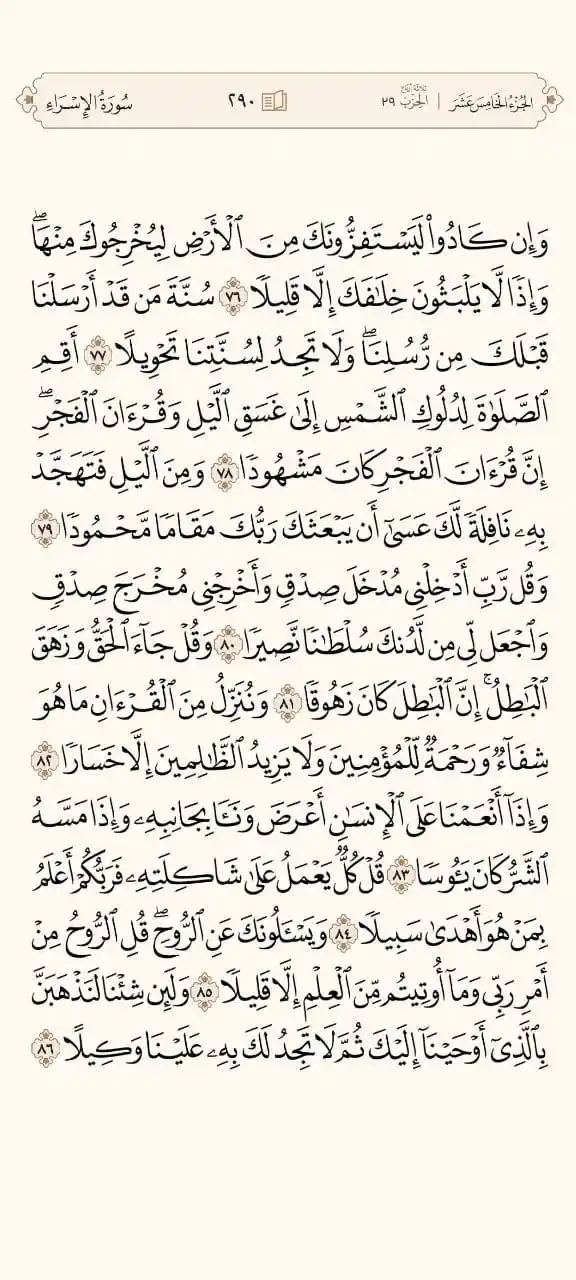 الجُزْءُ الخَامِسَ عَشَرَ | ثلاثة أرباع الحِزْبِ ٢٩ ٢٩٠ سُورَةُ الإِسْرَاءِ
وَإِن كَادُواْ لَيَسْتَفِزُّونَكَ مِنَ ٱلْأَرْضِ لِيُخْرِجُوكَ مِنْهَاۖ
وَإِذٗا لَّا يَلْبَثُونَ خِلَٰفَكَ إِلَّا قَلِيلٗا ٧٦ سُنَّةَ مَن قَدْ أَرْسَلْنَا
قَبْلَكَ مِن رُّسُلِنَاۖ وَلَا تَجِدُ لِسُنَّتِنَا تَحْوِيلًا ٧٧ أَقِمِ
ٱلصَّلَوٰةَ لِدُلُوكِ ٱلشَّمْسِ إِلَىٰ غَسَقِ ٱلَّيْلِ وَقُرْءَانَ ٱلْفَجْرِۖ
إِنَّ قُرْءَانَ ٱلْفَجْرِ كَانَ مَشْهُودٗا ٧٨ وَمِنَ ٱلَّيْلِ فَتَهَجَّدْ
بِهِۦ نَافِلَةٗ لَّكَ عَسَىٰٓ أَن يَبْعَثَكَ رَبُّكَ مَقَامٗا مَّحْمُودٗا ٧٩
وَقُل رَّبِّ أَدْخِلْنِي مُدْخَلَ صِدْقٖ وَأَخْرِجْنِي مُخْرَجَ صِدْقٖ
وَٱجْعَل لِّي مِن لَّدُنكَ سُلْطَٰنٗا نَّصِيرٗا ٨٠ وَقُلْ جَآءَ ٱلْحَقُّ وَزَهَقَ
ٱلْبَٰطِلُۚ إِنَّ ٱلْبَٰطِلَ كَانَ زَهُوقٗا ٨١ وَنُنَزِّلُ مِنَ ٱلْقُرْءَانِ مَا هُوَ
شِفَآءٞ وَرَحْمَةٞ لِّلْمُؤْمِنِينَ وَلَا يَزِيدُ ٱلظَّٰلِمِينَ إِلَّا خَسَارٗا ٨٢
وَإِذَآ أَنْعَمْنَا عَلَى ٱلْإِنسَٰنِ أَعْرَضَ وَنَـَٔا بِجَانِبِهِۦ وَإِذَا مَسَّهُ
ٱلشَّرُّ كَانَ يَـُٔوسٗا ٨٣ قُلْ كُلّٞ يَعْمَلُ عَلَىٰ شَاكِلَتِهِۦ فَرَبُّكُمْ أَعْلَمُ
بِمَنْ هُوَ أَهْدَىٰ سَبِيلٗا ٨٤ وَيَسْـَٔلُونَكَ عَنِ ٱلرُّوحِۖ قُلِ ٱلرُّوحُ مِنْ
أَمْرِ رَبِّي وَمَآ أُوتِيتُم مِّنَ ٱلْعِلْمِ إِلَّا قَلِيلٗا ٨٥ وَلَئِن شِئْنَا لَنَذْهَبَنَّ
بِٱلَّذِيٓ أَوْحَيْنَآ إِلَيْكَ ثُمَّ لَا تَجِدُ لَكَ بِهِۦ عَلَيْنَا وَكِيلًا ٨٦